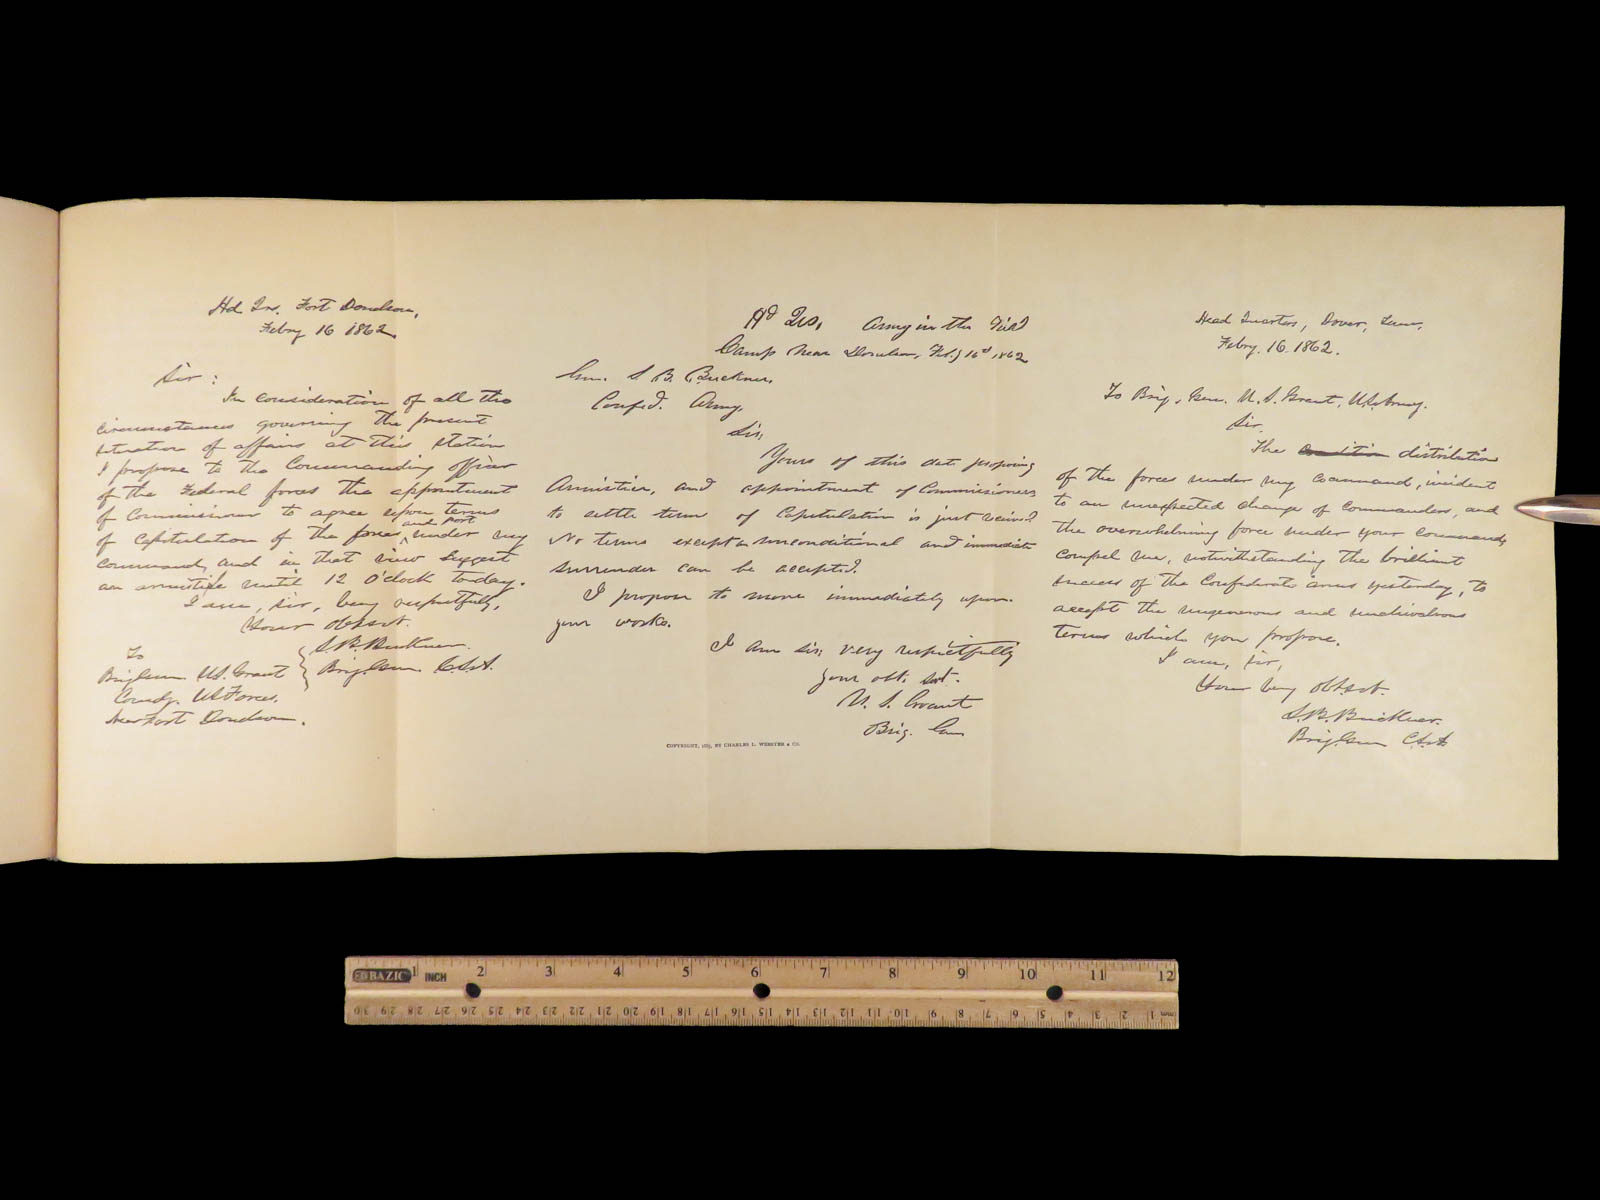 Hd Qrs. Fort Donelson,
Febry 16 1862
Sir :
In consideration of all the
circumstances governing the present
situation of affairs at this station
I propose to the Commanding officer
of the Federal forces the appointment
of Commissioners to agree upon terms
of capitulation of the forces and post under my
command, and in that view suggest
an armistice until 12 o'clock to-day.
I am, sir, very respectfully,
Your obt. svt.
S. B. Buckner.
Brig. Gen. C.S.A.
To
Brig Gen. U.S. Grant
Comdg. US Forces,
Near Fort Donelson.
Hd Qrs, Army in the Field
Camp near Donelson, Feby 16th 1862
Gen. S. B. Buckner,
Confed. Army,
Sir;
Yours of this date proposing
Armistice, and appointment of Commissioners
to settle terms of Capitulation is just received.
No terms except an unconditional and immediate
surrender can be accepted.
I propose to move immediately upon
your works.
I am sir; very respectfully
your obt. svt.
U. S. Grant
Brig. Gen
COPYRIGHT, 1885, BY CHARLES L. WEBSTER & CO.
Head Quarters, Dover, Tenn,
Febry. 16 1862.
To Brig. Gen. U. S. Grant, U.S. Army.
Sir,
The condition distribution
of the forces under my command, incident
to an unexpected change of commanders, and
the overwhelming force under your command,
compel me, notwithstanding the brilliant
success of the Confederate arms yesterday, to
accept the ungenerous and unchivalrous
terms which you propose.
I am, sir,
Your very obt. svt.
S. B. Buckner.
Brig. Gen C.S.A.
BAZIC INCH
1 2 3 4 5 6 7 8 9 10 11 12
30 29 28 27 26 25 24 23 22 21 20 19 18 17 16 15 14 13 12 11 10 9 8 7 6 5 4 3 2 1 mm